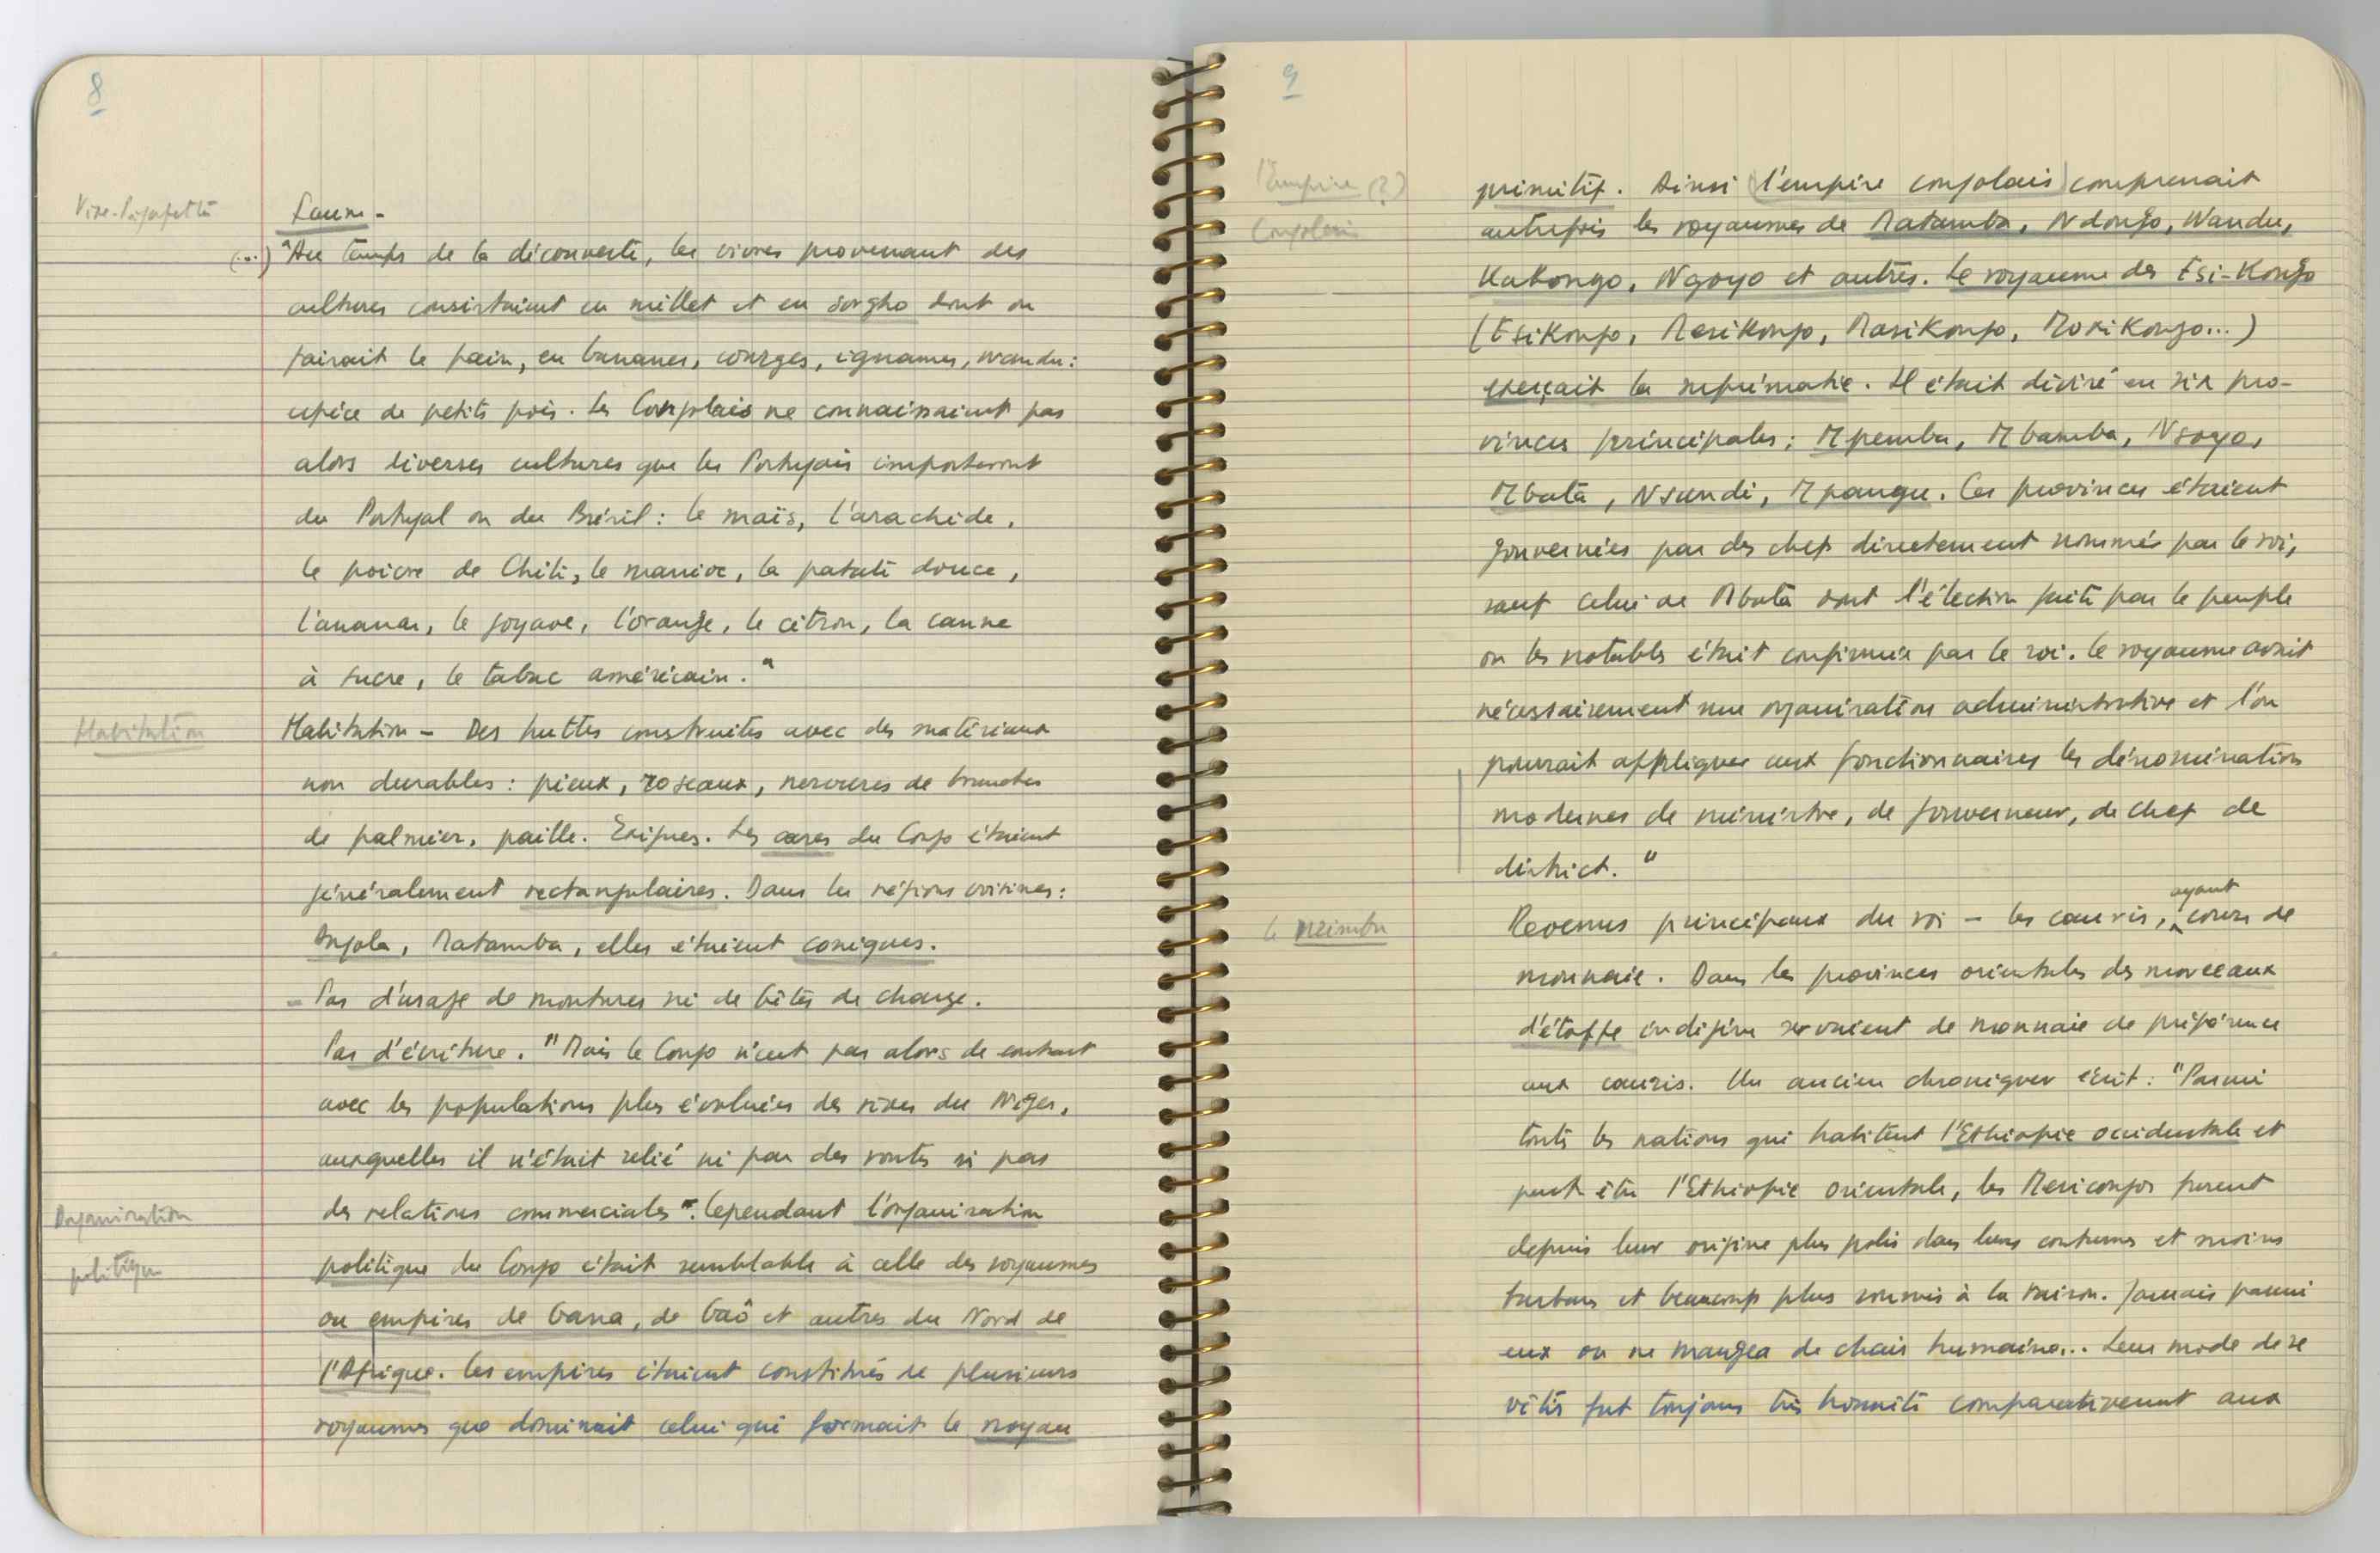 8
Faune -
(...) "Au temps de la découverte, les vivres provenant des
cultures consistaient en millet et en sorgho dont on
faisait le pain, en bananes, courges, ignames, wandu:
espèce de petits pois. Les Congolais ne connaissaient pas
alors diverses cultures que les Portugais importèrent
du Portugal ou du Brésil : le maïs, l'arachide,
le poivre de Chili, le manioc, la patate douce,
l'ananas, le goyave, l'orange, le citron, la canne
à sucre, le tabac américain."
Habitation
Habitation - Des huttes construites avec des matériaux
non durables : pieux, roseaux, nervures de branches
de palmier, paille. Exigues. Les cases du Congo étaient
généralement rectangulaires. Dans les régions voisines:
Angola, Matamba, elles étaient coniques.
- Pas d'usage de montures ni de bêtes de charge.
Pas d'écriture. "Mais le Congo n'eut pas alors de contact
avec les populations plus évoluées des rives du Niger,
auxquelles il n'était relié ni par des routes ni par
des relations commerciales". Cependant l'organisation
Organisation
politique
politique du Congo était semblable à celle des royaumes
ou empires de Gana, de Gaô et autres du Nord de
l'Afrique. Ces empires étaient constitués de plusieurs
royaumes que dominait celui qui formait le noyau
9
l'Empire (?)
Congolais
primitif. Ainsi (l'empire congolais) comprenait
autrefois les royaumes de Matamba, Ndongo, Wandu,
Kakongo, Ngoyo et autres. Le royaume des Esi-Kongo
(Esikongo, Mesikongo, Masikongo, Moxikongo...)
exerçait la suprématie. Il était divisé en six pro-
vinces principales : Mpemba, Mbamba, Nsoyo,
Mbata, Nsundi, Mpangu. Ces provinces étaient
gouvernées par des chefs directement nommés par le roi,
sauf celui de Mbata dont l'élection faite par le peuple
ou les notables était confirmée par le roi. Le royaume avait
nécessairement une organisation administrative et l'on
pourrait appliquer aux fonctionnaires les dénomination
modernes de ministre, de gouverneur, de chef de
district."
le nzimbu
Revenus principaux du roi - les cauris, ayant cours de
monnaie. Dans les provinces orientales des morceaux
d'étoffe indigène servaient de monnaie de préférence
aux cauris. Un ancien chroniqueur écrit : "Parmi
toutes les nations qui habitent l'Ethiopie occidentale et
peut être l'Ethiopie orientale, les Mexicongos furent
depuis leur origine plus polis dans leurs coutumes et moins
barbares et beaucoup plus soumis à la raison. Jamais parmi
eux on ne mangea de chair humaine... Leur mode de se
vêtir fut toujours très honnête comparativement aux